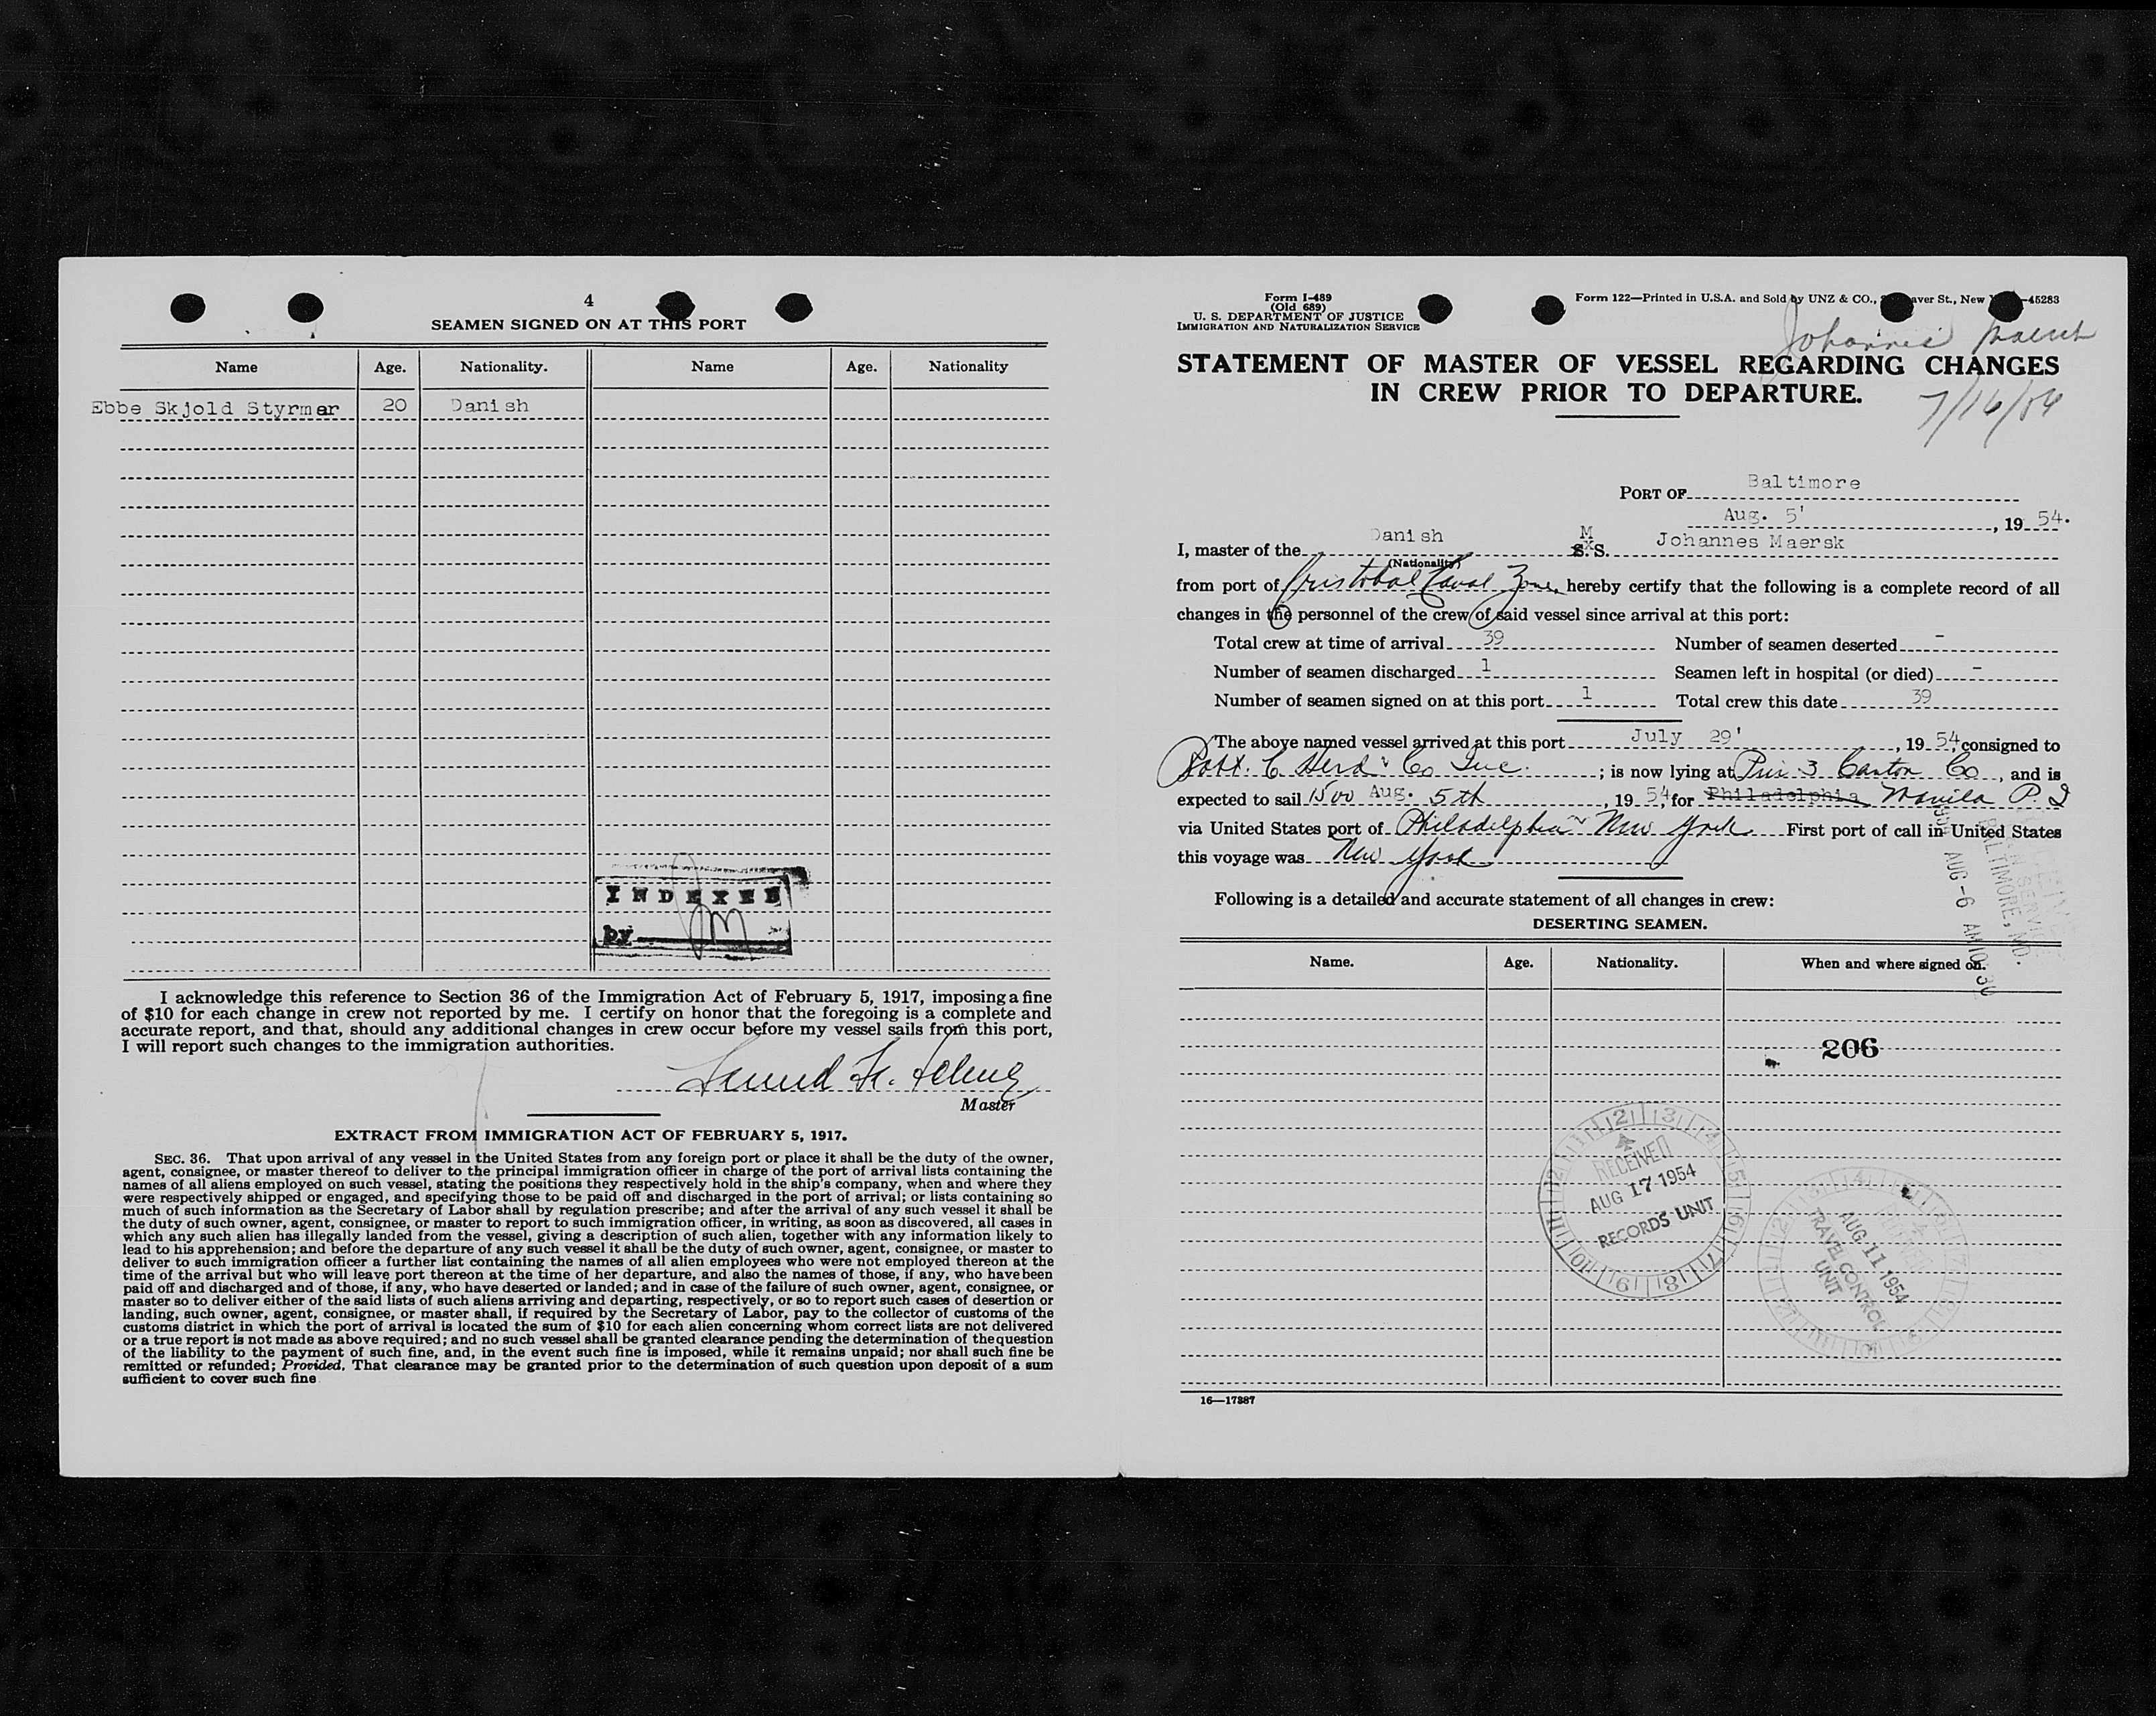 4
SEAMEN SIGNED ON AT THIS PORT
Name Age. Nationality. Name Age. Nationality
Ebbe Skjold Styrmer 20 Danish
INDEXED
by
I acknowledge this reference to Section 36 of the Immigration Act of February 5, 1917, imposing a fine
of $10 for each change in crew not reported by me. I certify on honor that the foregoing is a complete and
accurate report, and that, should any additional changes in crew occur before my vessel sails from this port,
I will report such changes to the immigration authorities.
Master
EXTRACT FROM IMMIGRATION ACT OF FEBRUARY 5, 1917.
SEC. 36. That upon arrival of any vessel in the United States from any foreign port or place it shall be the duty of the owner,
agent, consignee, or master thereof to deliver to the principal immigration officer in charge of the port of arrival lists containing the
names of all aliens employed on such vessel, stating the positions they respectively hold in the ship's company, when and where they
were respectively shipped or engaged, and specifying those to be paid off and discharged in the port of arrival; or lists containing so
much of such information as the Secretary of Labor shall by regulation prescribe; and after the arrival of any such vessel it shall be
the duty of such owner, agent, consignee, or master to report to such immigration officer, in writing, as soon as discovered, all cases in
which any such alien has illegally landed from the vessel, giving a description of such alien, together with any information likely to
lead to his apprehension; and before the departure of any such vessel it shall be the duty of such owner, agent, consignee, or master to
deliver to such immigration officer a further list containing the names of all alien employees who were not employed thereon at the
time of the arrival but who will leave port thereon at the time of her departure, and also the names of those, if any, who have been
paid off and discharged and of those, if any, who have deserted or landed; and in case of the failure of such owner, agent, consignee, or
master so to deliver either of the said lists of such aliens arriving and departing, respectively, or so to report such cases of desertion or
landing, such owner, agent, consignee, or master shall, if required by the Secretary of Labor, pay to the collector of customs of the
customs district in which the port of arrival is located the sum of $10 for each alien concerning whom correct lists are not delivered
or a true report is not made as above required; and no such vessel shall be granted clearance pending the determination of the question
of the liability to the payment of such fine, and, in the event such fine is imposed, while it remains unpaid; nor shall such fine be
remitted or refunded; Provided, That clearance may be granted prior to the determination of such question upon deposit of a sum
sufficient to cover such fine
Form I-489
(Old 689)
U. S. DEPARTMENT OF JUSTICE
IMMIGRATION AND NATURALIZATION SERVICE
Form 122—Printed in U.S.A. and Sold by UNZ & CO., aver St., New —45283
Johannes Maersk
STATEMENT OF MASTER OF VESSEL REGARDING CHANGES
IN CREW PRIOR TO DEPARTURE.
7/16/54
PORT OF Baltimore
Aug. 5' , 19 54.
I, master of the Danish M S.S. Johannes Maersk
(Nationality)
from port of Cristobal Canal Zone, hereby certify that the following is a complete record of all
changes in the personnel of the crew of said vessel since arrival at this port:
Total crew at time of arrival 39 Number of seamen deserted -
Number of seamen discharged 1 Seamen left in hospital (or died) -
Number of seamen signed on at this port 1 Total crew this date 39
The above named vessel arrived at this port July 29' , 19 54, consigned to
Robt. C. Herd & Co Inc. ; is now lying at Pier 3 Canton Co , and is
expected to sail 1500 Aug. 5th , 19 54, for Philadelphia Manila P. I
via United States port of Philadelphia New York First port of call in United States
this voyage was New York
Following is a detailed and accurate statement of all changes in crew:
DESERTING SEAMEN.
BALTIMORE, MD.
AUG-6 AM 10 30
Name. Age. Nationality. When and where signed on.
206
RECEIVED
AUG 17 1954
RECORDS UNIT
AUG 11 1954
TRAVEL CONTROL
UNIT
16—17387